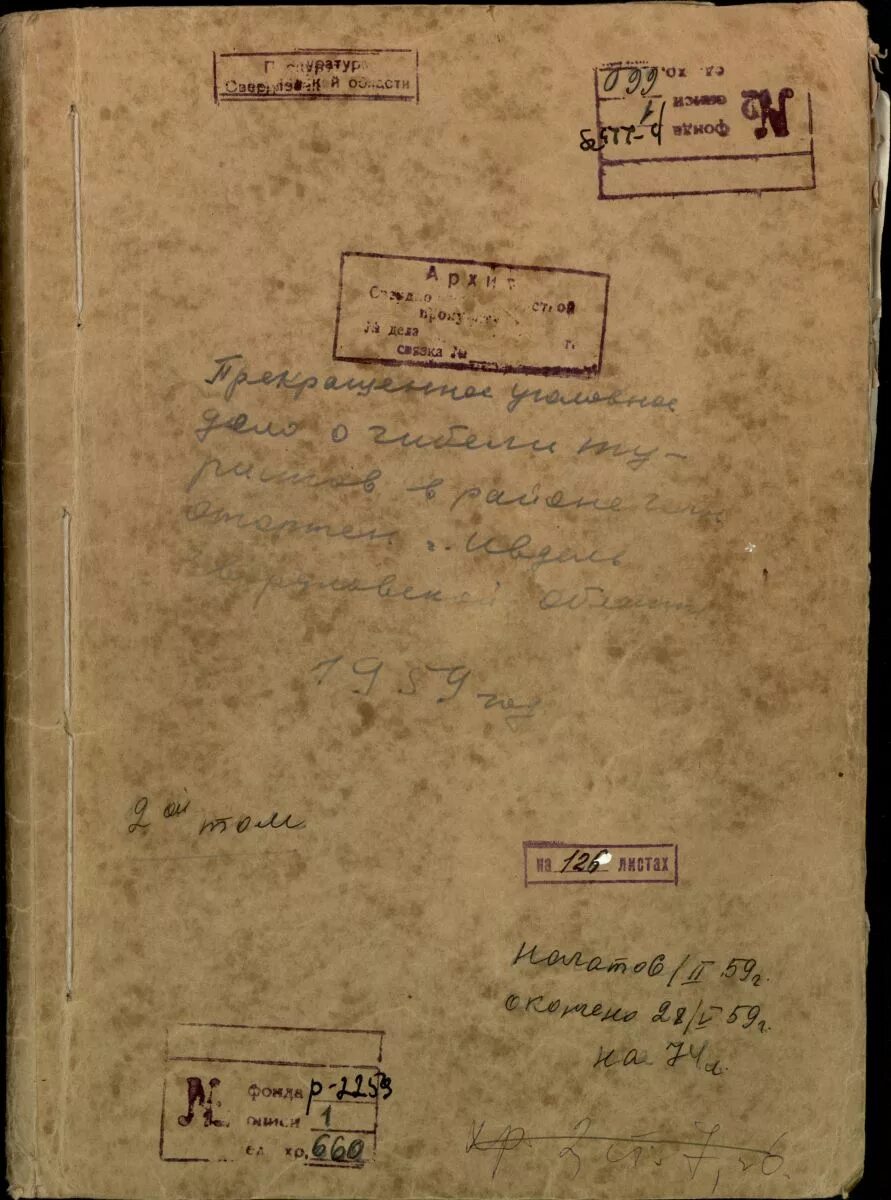 Прокуратура
Свердловской области
№ фонда р-2259
описи 1
ед. хр. 660
Архив
прокуратуры
№ дела г.
связка №
Прекращенное уголовное
дело о гибели ту-
ристов в районе горы
отортен г. Ивдель
Свердловской области
1959 год
2ой том
на 126 листах
начато 6/II 59г.
окончено 28/V 59г.
на 74 л.
№ фонда р-2259
описи 1
ед. хр. 660